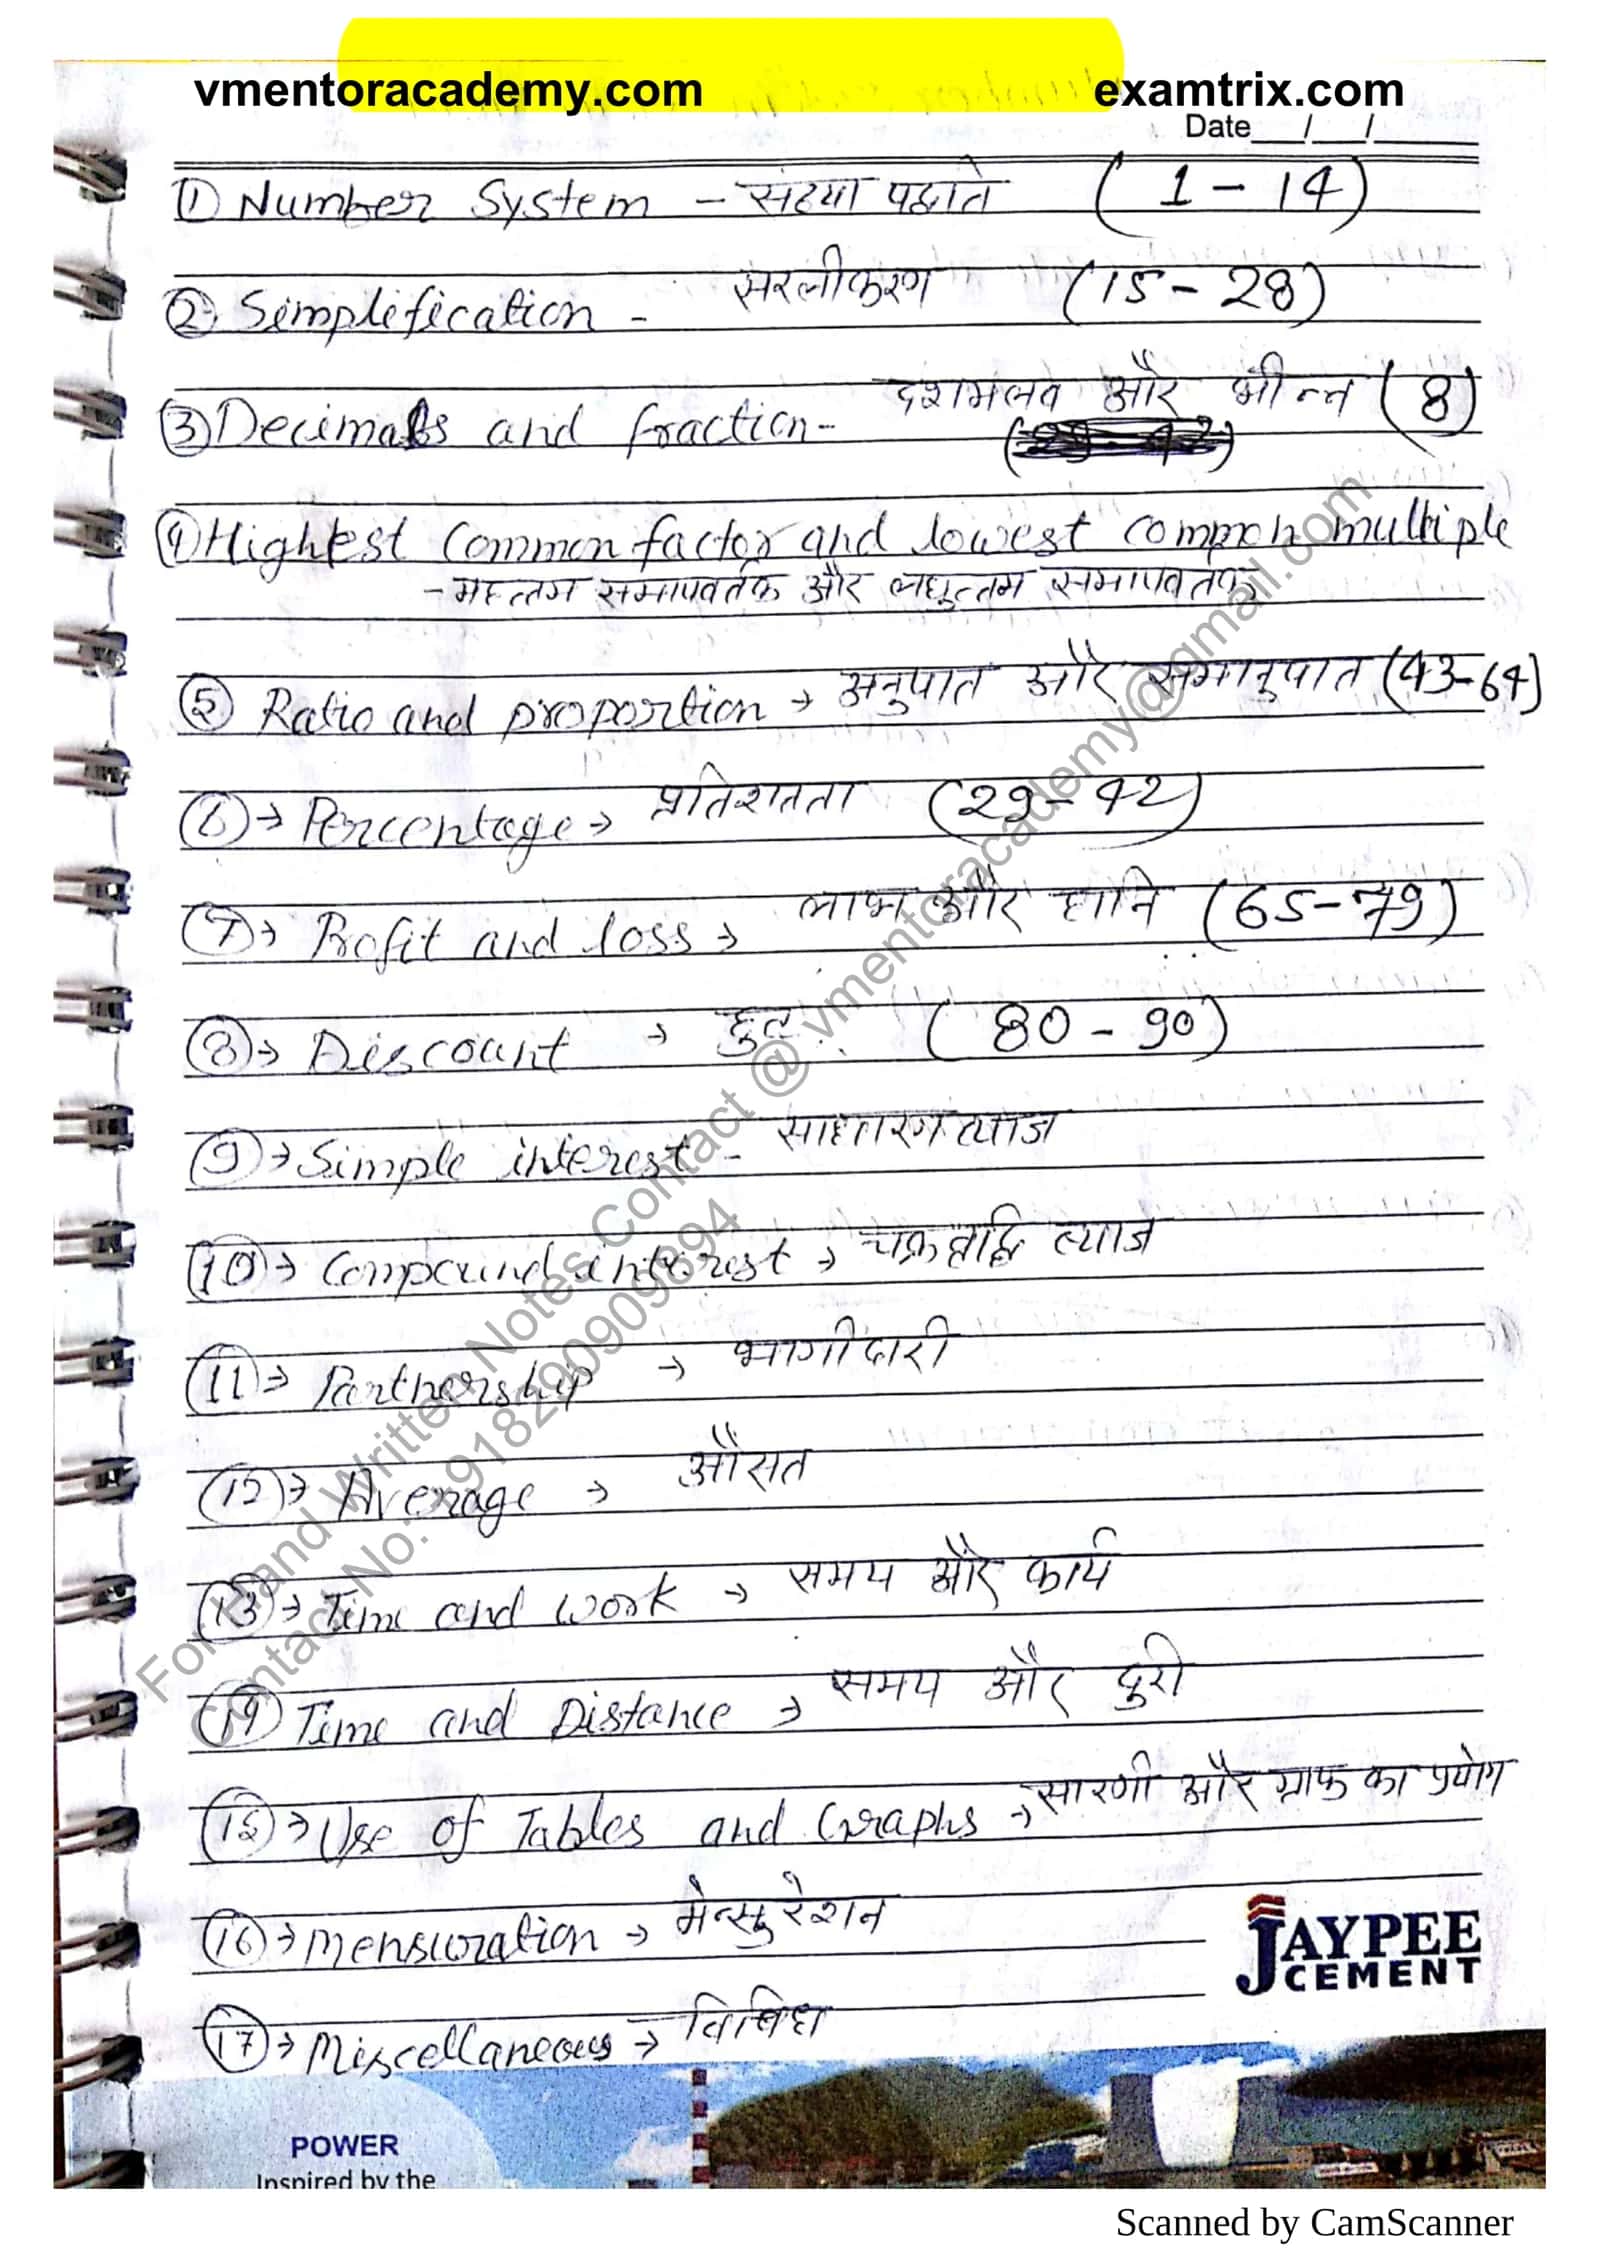 vmentoracademy.com examtrix.com
Date __/__/____
① Number System - संख्या पद्धति (1 - 14)
② Simplification - सरलीकरण (15 - 28)
③ Decimals and fraction - दशमलव और भीन्न (8)
④ Highest Common factor and lowest common multiple
- महत्तम समापवर्तक और लघुत्तम समापवर्तक
⑤ Ratio and proportion → अनुपात और समानुपात (43-64)
⑥ → Percentage → प्रतिशतता (29 - 42)
⑦ → Profit and loss → लाभ और हानि (65-79)
⑧ → Discount → छुट (80 - 90)
⑨ → Simple interest - साधारण ब्याज
⑩ → Compound interest → चक्रवृद्धि ब्याज
⑪ → Partnership → भागीदारी
⑫ → Average → औसत
⑬ → Time and work → समय और कार्य
⑭ Time and Distance → समय और दुरी
⑮ → Use of Tables and Graphs → सारणी और ग्राफ का प्रयोग
⑯ → Mensuration → मेन्सुरेशन
⑰ → Miscellaneous → विविध
For Hand Written Notes Contact @ vmentoracademy@gmail.com
Contact No: +918290909894
JAYPEE
CEMENT
POWER
Inspired by the
Scanned by CamScanner